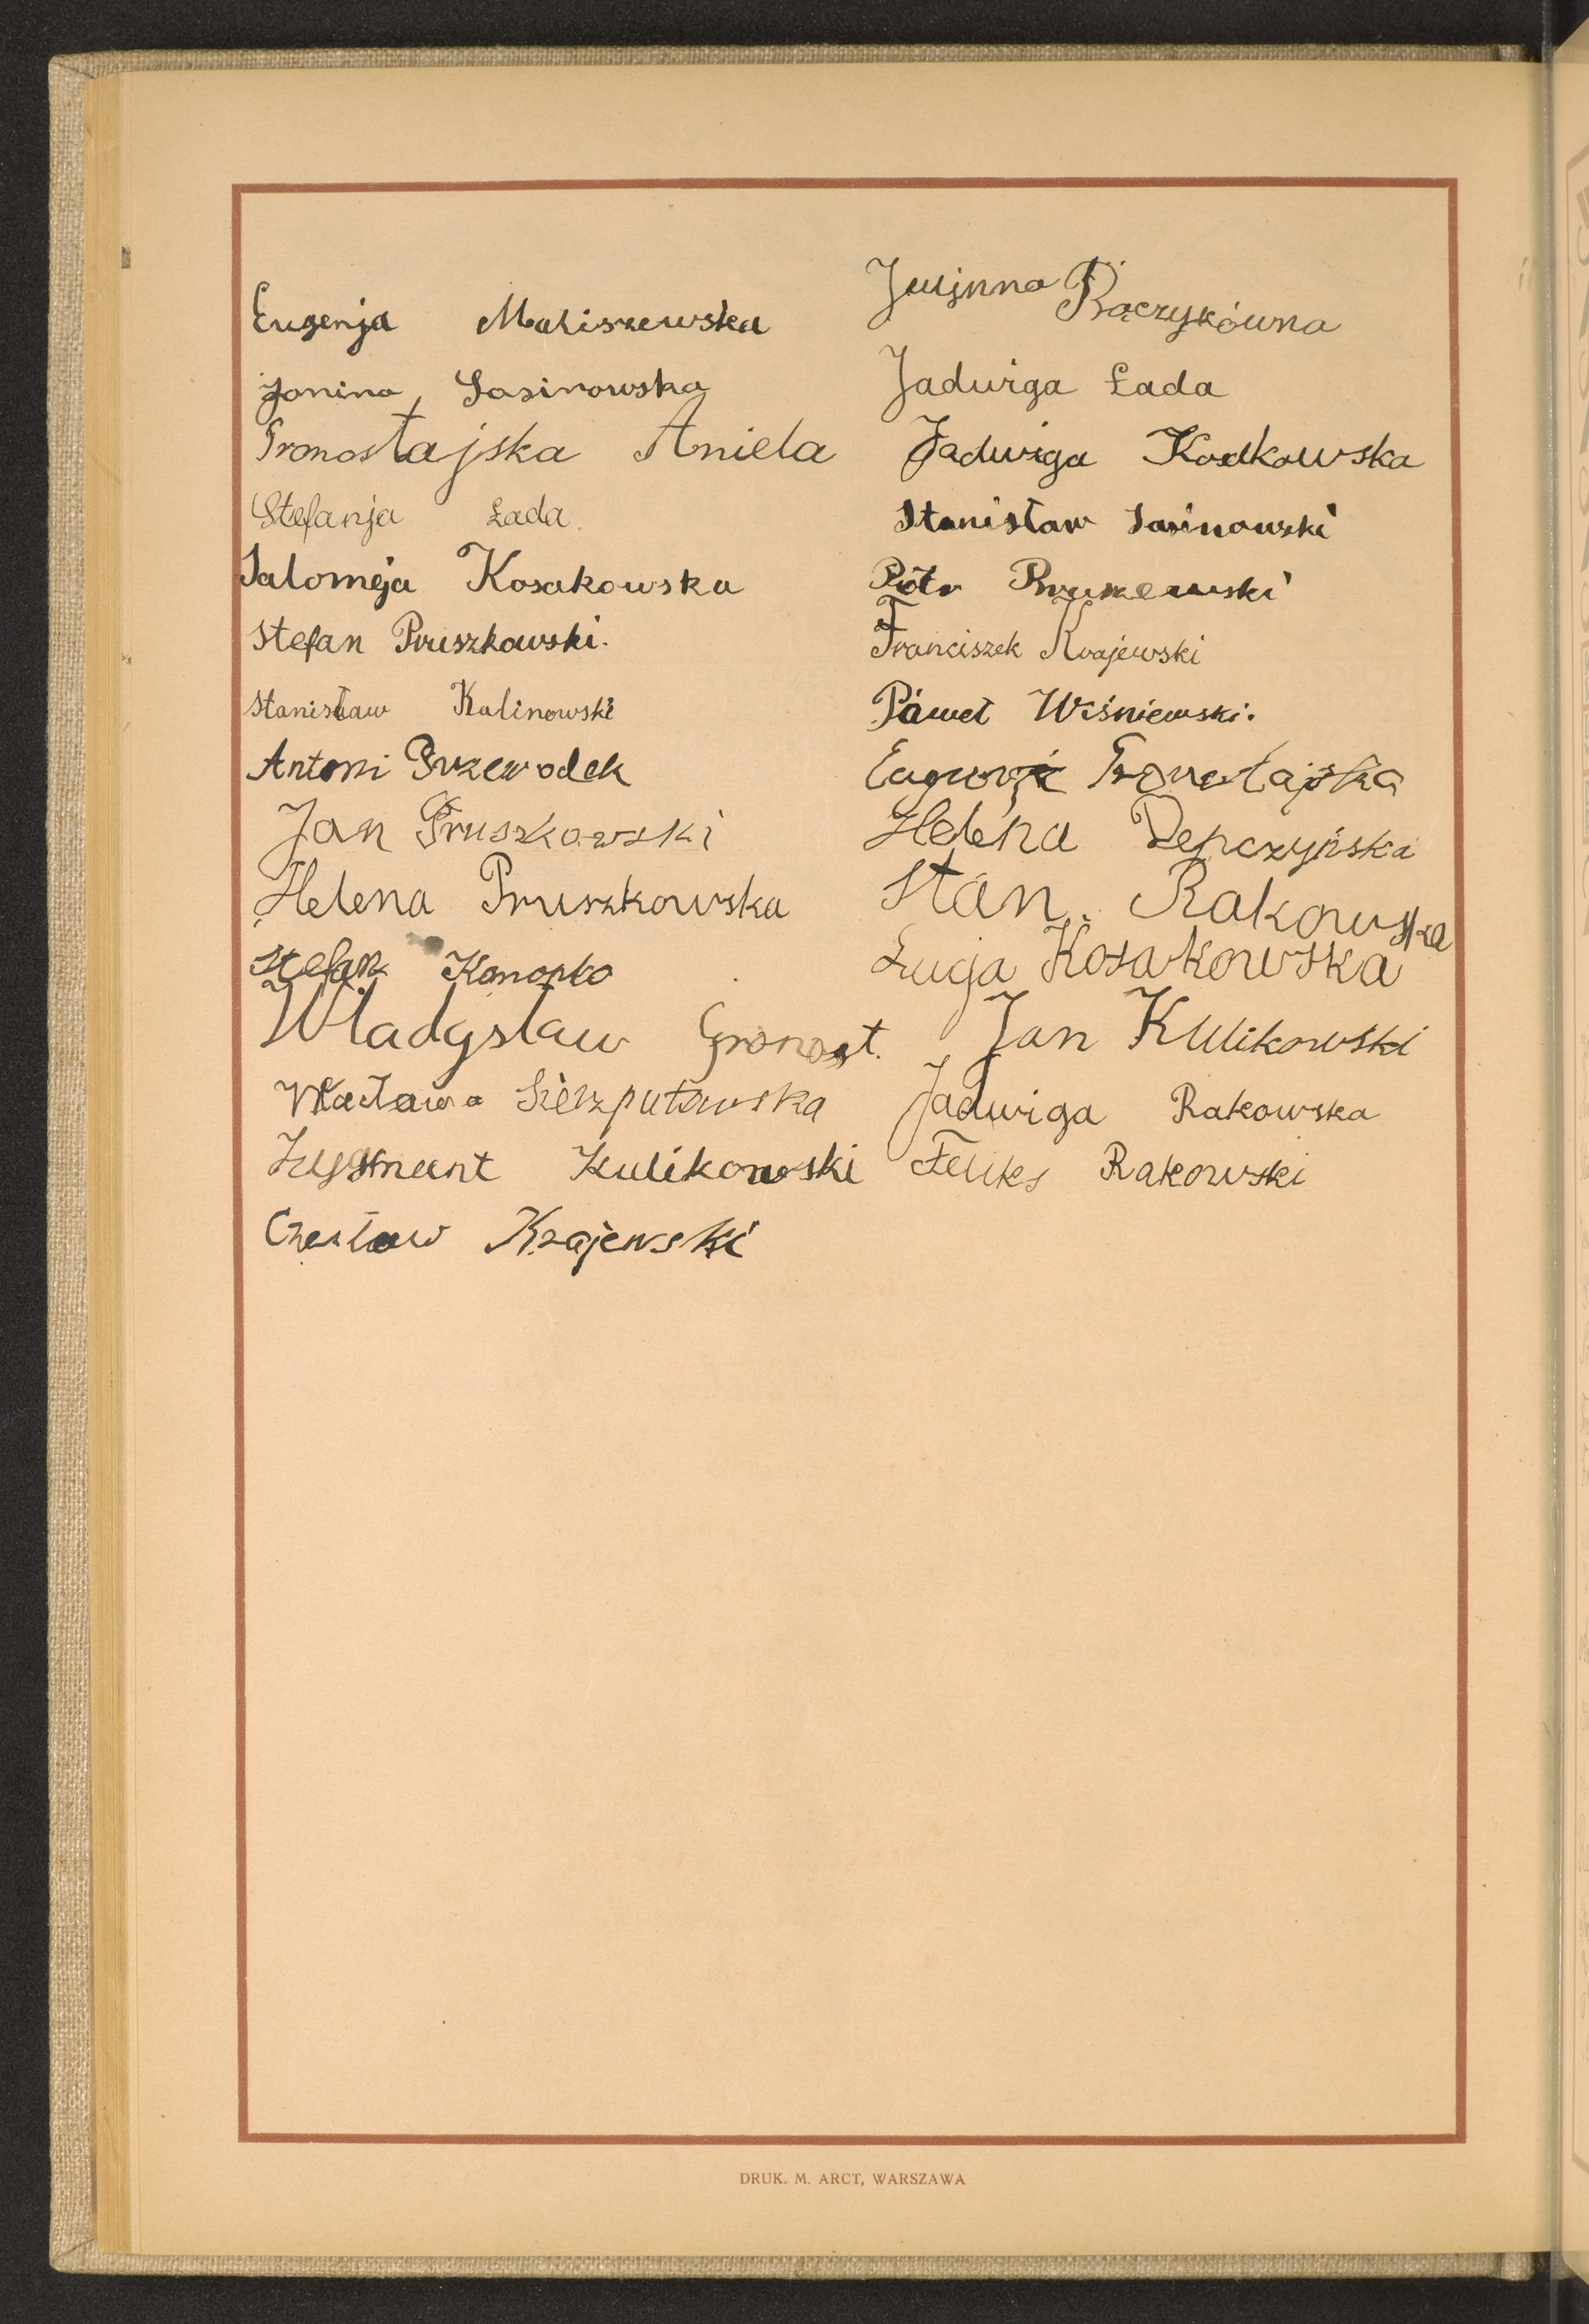 Eugenja Maliszewska
Janina Sasinowska
Gronostajska Aniela
Stefanja Łada
Salomeja Kosakowska
Stefan Pruszkowski.
Stanisław Kalinowski
Antoni Przewodek
Jan Pruszkowski
Helena Pruszkowska
Stefan Konopko
Władysław Gronost.
Wacława Sierzputowska
Zygmunt Kulikowski
Czesław Krajewski
Juljanna Rączykówna
Jadwiga Łada
Jadwiga Kosakowska
Stanisław Sasinowski
Piotr
Franciszek Krajewski
Paweł Wiśniewski.
Eugenja Gronostajska
Helena Depczyńska
Stan. Rakowska
Łucja Kosakowska
Jan Kulikowski
Jadwiga Rakowska
Feliks Rakowski
DRUK. M. ARCT, WARSZAWA